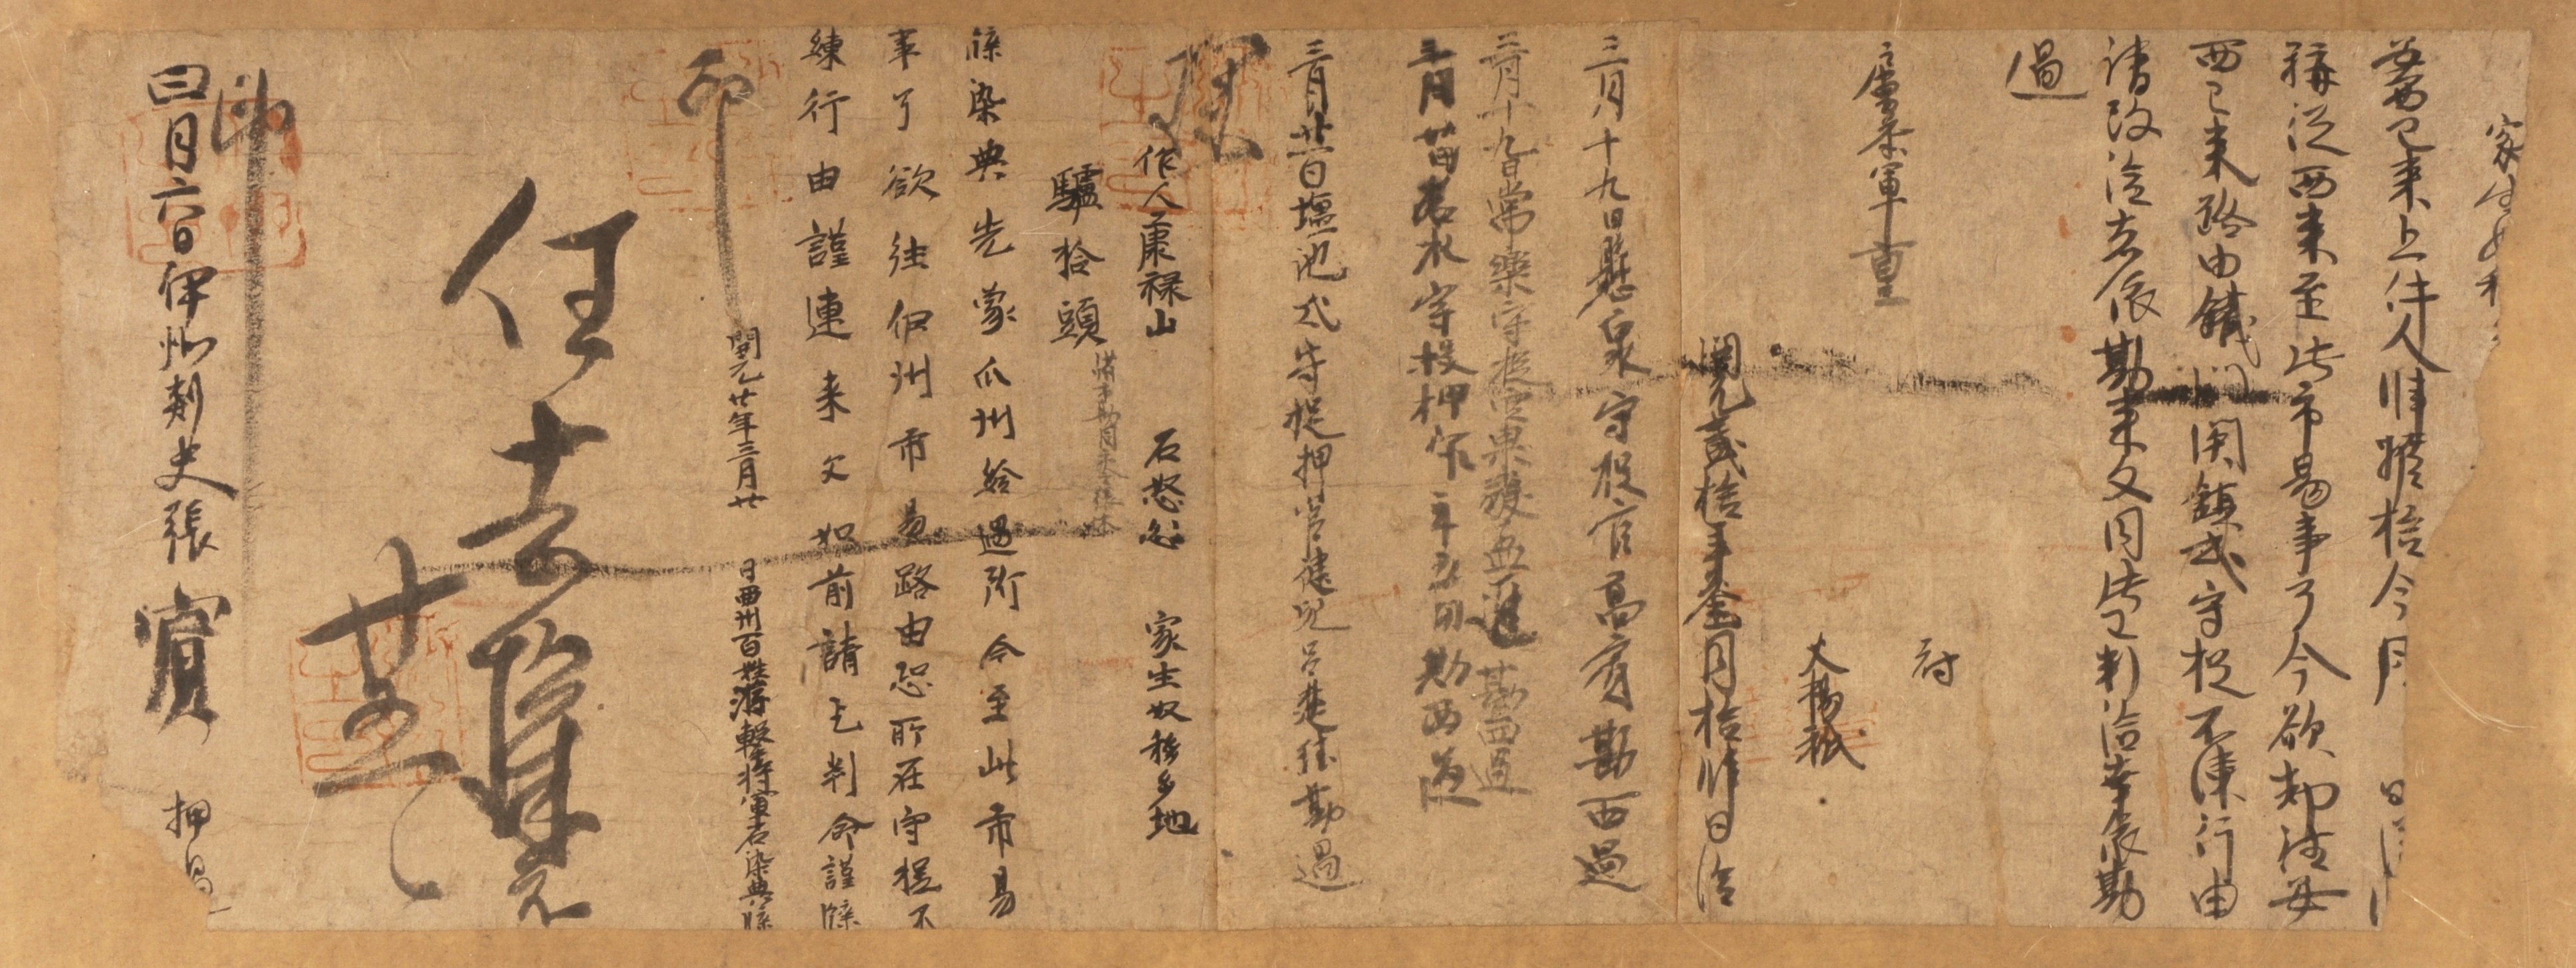 家生奴移
安西已來上件人肆驢拾今月 日得牒
稱從西來至此市易事了今欲却往安
西已來路由鐵門關鎮戍守捉不練行由
請改給者依勘來文同此已判給幸依勘
過
府
户曹參軍亶
史楊祗
開元貳拾年叁月拾肆日給
三月十九日懸泉守捉官高賓勘西過
三月十九日常樂守捉官果毅孟進勘西過
三月廿日苦水守捉押官年五用勘西過
三月廿一日鹽池戍守捉押官健兒呂楚珪勘過
琛
作人康祿山 石怒忿 家生奴移多地
驢拾頭 沙州市勘同市令張休
牒染典先蒙瓜州給過所今至此市易
事了欲往伊州市易路由恐所在守捉不
練行由謹連來文如前請乞判命謹牒
印
開元廿年三月廿 日西州百姓游擊將軍石染典牒
任去琛示
廿五日
印
四月六日伊州刺史張賓 押過